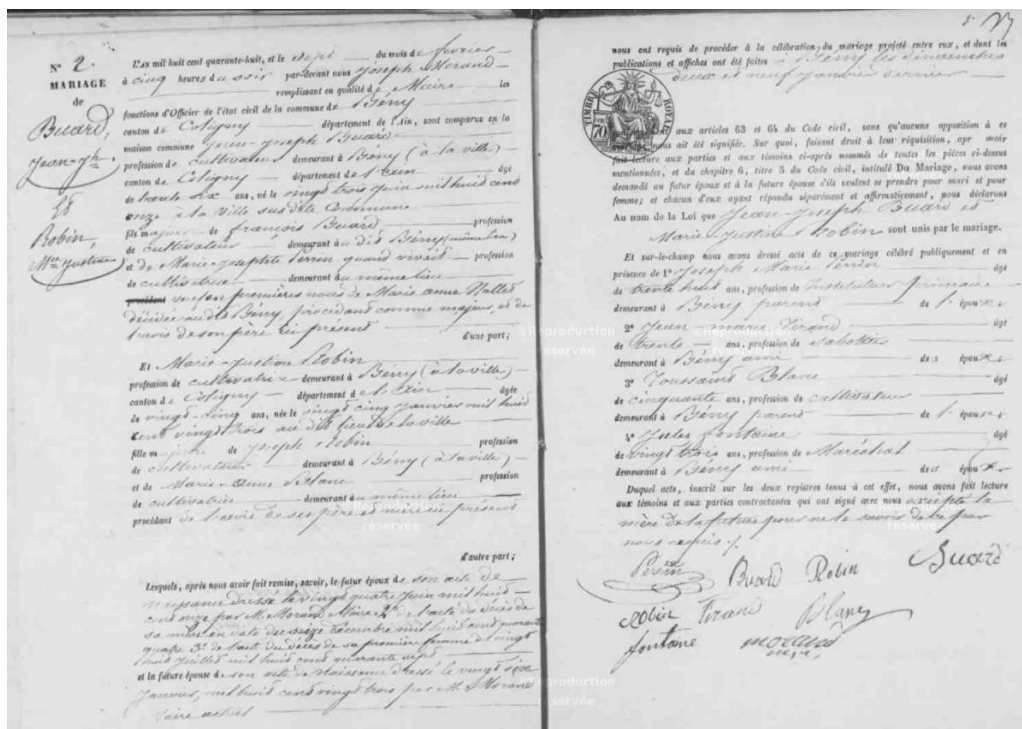 N° 2.
MARIAGE
de
Buard,
Jean-Jh
Et
Robin,
Mie Justine
L'AN mil huit cent quarante-huit, et le sept du mois de fevrier
à cinq heures du soir par-devant nous Joseph Morand
remplissant en qualité de Maire les
fonctions d'Officier de l'état civil de la commune de Bény
canton de Coligny département de l'Ain, sont comparus en la
maison commune Jean-Joseph Buard
profession de cultivateur demeurant à Bény (à la ville)
canton de Coligny département de l'ain âgé
de trente six ans, né le vingt trois Juin mil huit cent
onze à la Ville susdite Commune
fils majeur de françois Buard profession
de cultivateur demeurant au dit Bény (même lieu)
et de Marie-Josephte Perrin quand vivait profession
de cultivatrice demeurant au même lieu
veuf en premières noces de Marie anne
décédée au dit Bény, procédant comme majeur, et de
l'avis de son père ici présent
d'une part;
Et Marie-Justine Robin
profession de cultivatrice demeurant à Bény (à la ville)
canton de Coligny département de l'Ain âgée
de vingt-cinq ans, née le vingt cinq Janvier mil huit
cent vingt trois au dit lieu de la ville
fille majeure de Joseph Robin profession
de cultivateur demeurant à Bény (à la ville)
et de Marie-Anne Blanc profession
de cultivatrice demeurant au même lieu
procédant de l'avis de ses père et mère ici présents
d'autre part;
Lesquels, après nous avoir fait remise, savoir, le futur époux de son acte de
naissance dressé le vingt quatre Juin mil huit
cent onze par M. Morand Maire 2° de l'acte de décès de
sa mère en date du seize décembre mil huit cent quarante
quatre 3° de l'acte du décès de sa première femme du vingt
huit Juillet mil huit cent quarante sept
et la future épouse de son acte de naissance dressé le vingt six
Janvier, mil huit cent vingt trois par M. Morand
Maire actuel
nous ont requis de procéder à la célébration du mariage projeté entre eux, et dont les
publications et affiches ont été faites à Bény les dimanches
deux et neuf Janvier dernier
TIMBRE ROYAL
70
aux articles 63 et 64 du Code civil, sans qu'aucune opposition à ce
mariage nous ait été signifiée. Sur quoi, faisant droit à leur réquisition, apr avoir
fait lecture aux parties et aux témoins ci-après nommés de toutes les pièces ci-dessus
mentionnées, et du chapitre 6, titre 5 du Code civil, intitulé Du Mariage, nous avons
demandé au futur époux et à la future épouse s'ils veulent se prendre pour mari et pour
femme; et chacun d'eux ayant répondu séparément et affirmativement, nous déclarons
Au nom de la Loi que Jean-Joseph Buard et
Marie Justine Robin sont unis par le mariage.
Et sur-le-champ nous avons dressé acte de ce mariage célébré publiquement et en
présence de 1° Joseph Marie Perrin âgé
de trente huit ans, profession de Instituteur primaire
demeurant à Bény parent de l'époux
2° Jean marie Tirand âgé
de trente ans, profession de sabottier
demeurant à Bény ami des époux
3° Toussaint Blanc âgé
de cinquante ans, profession de cultivateur
demeurant à Bény parent de l'épouse
4° Jules fontaine âgé
de vingt trois ans, profession de Maréchal
demeurant à Bény ami des époux
Duquel acte, inscrit sur les deux registres tenus à cet effet, nous avons fait lecture
aux témoins et aux parties contractantes qui ont signé avec nous excepté la
mère de la future pour ne le savoir de ce par
nous requis ./.
Perrin Buard Robin Buard
Robin Tirand Blanc
fontaine morand
mre
©Reproduction
réservée
©Reproduction
réservée